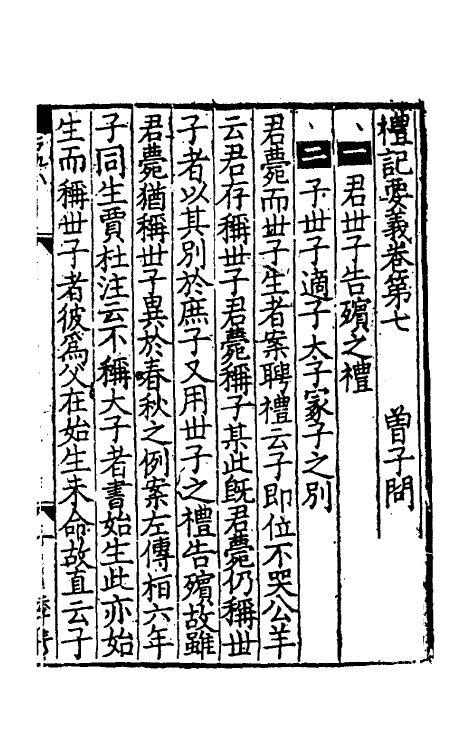 禮記要義卷第七 曾子問
一 君世子告殯之禮
二 子世子適子太子冢子之別
君薨而世子生者案聘禮云子即位不哭公羊
云君存稱世子君薨稱子某此旣君薨仍稱世
子者以其別於庶子又用世子之禮告殯故雖
君薨猶稱世子異於春秋之例案左傳桓六年
子同生賈杜注云不稱大子者書始生此亦始
生而稱世子者彼爲父在始生未命故直云子